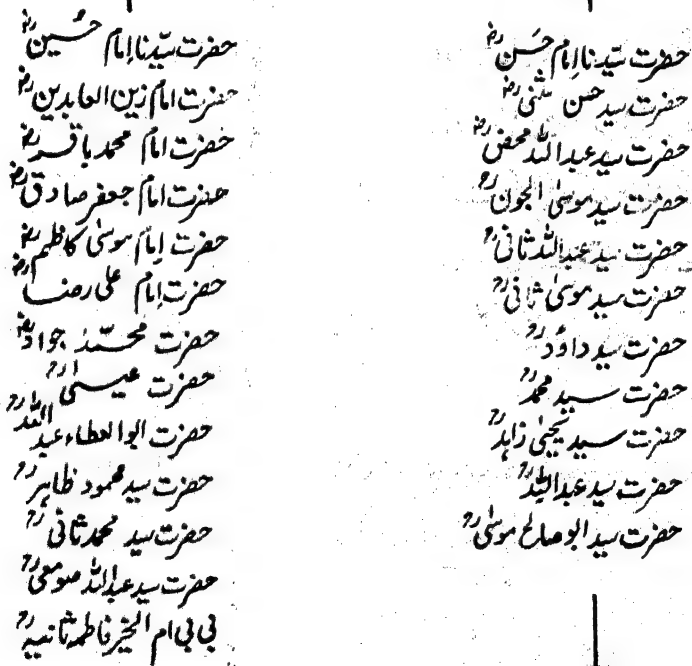 حضرت سیّدنا اِمام حَسنؓ
حضرت سید حسن مثنیٰؓ
حضرت سید عبداللہ محضؓ
حضرت سید موسیٰ الجونؒ
حضرت سید عبداللہ ثانیؒ
حضرت سید موسیٰ ثانیؒ
حضرت سید داؤدؒ
حضرت سید محمدؒ
حضرت سید یحییٰ زاہدؒ
حضرت سید عبداللہؒ
حضرت سید ابو صالح موسیٰؒ
حضرت سیّدنا اِمام حُسینؓ
حضرت امام زین العابدینؓ
حضرت امام محمد باقرؓ
حضرت امام جعفر صادقؓ
حضرت اِمام موسیٰ کاظمؓ
حضرت اِمام علی رضاؓ
حضرت محمّد جوادؓ
حضرت عیسیٰؒ
حضرت ابو العطاء عبد اللہؒ
حضرت سید محمود طاہرؒ
حضرت سید محمد ثانیؒ
حضرت سید عبداللہ صومعیؒ
بی بی ام الخیر فاطمہ ثانیہؒ